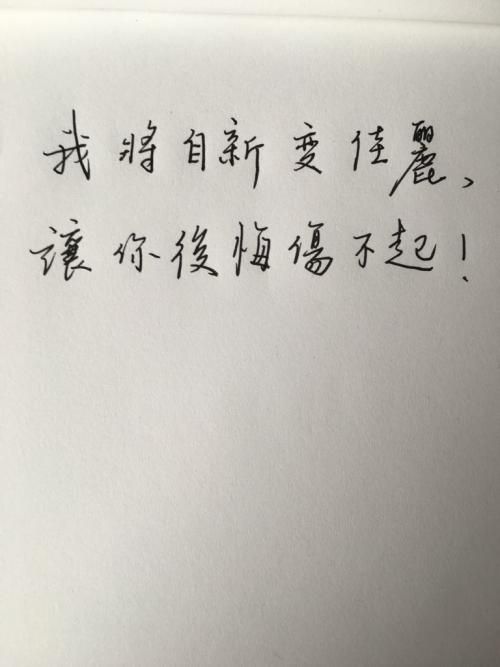 我將自新变佳麗、
讓你後悔傷不起！